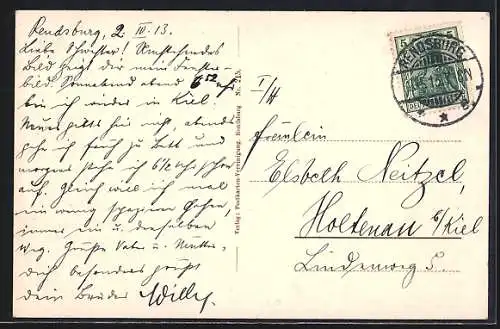 Rendsburg, 2. III. 13.
Liebe Schwester! Umstehendes
Bild zeigt dir mein Fenster-
bild. Sonnabend abend 6 52
bin ich wieder in Kiel.
Neues gibts hier nicht, abends
gehe ich früh zu Bett und
morgens stehe ich 6½ Uhr schon
auf. Gleich will ich mal
ein wenig spazieren gehen,
immer ein u. denselben
Weg. Grüße Vater u. Mutter,
dich besonders grüßt
dein Bruder Willy.
Verlag: Postkarten-Vereinigung, Rendsburg Nr.
I/H
RENDSBURG
5 5
Fräulein
Elsbeth Neitzel,
Holtenau b/Kiel
Lindenweg 5.